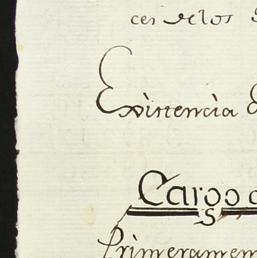 ces de los
Existencia
Cargo
Primeramen